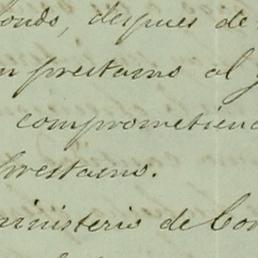 fondo, despues de
prestamo al
comprometiend
prestamo.
ministerio de Con